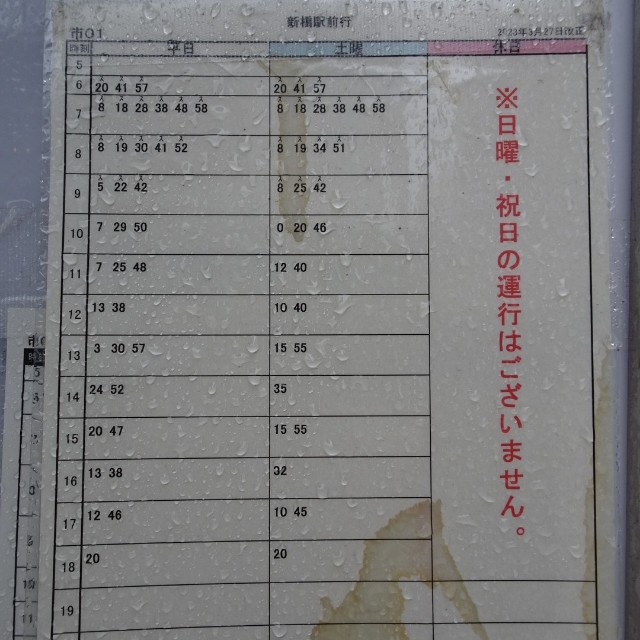 新橋駅前行
市01 2023年3月27日改正
時刻 平日 土曜 休日
5
6 20 41 57 20 41 57
7 8 18 28 38 48 58 8 18 28 38 48 58
8 8 19 30 41 52 8 19 34 51
9 5 22 42 8 25 42
10 7 29 50 0 20 46
11 7 25 48 12 40
12 13 38 10 40
13 3 30 57 15 55
14 24 52 35
15 20 47 15 55
16 13 38 32
17 12 46 10 45
18 20 20
19
※日曜・祝日の運行はございません。